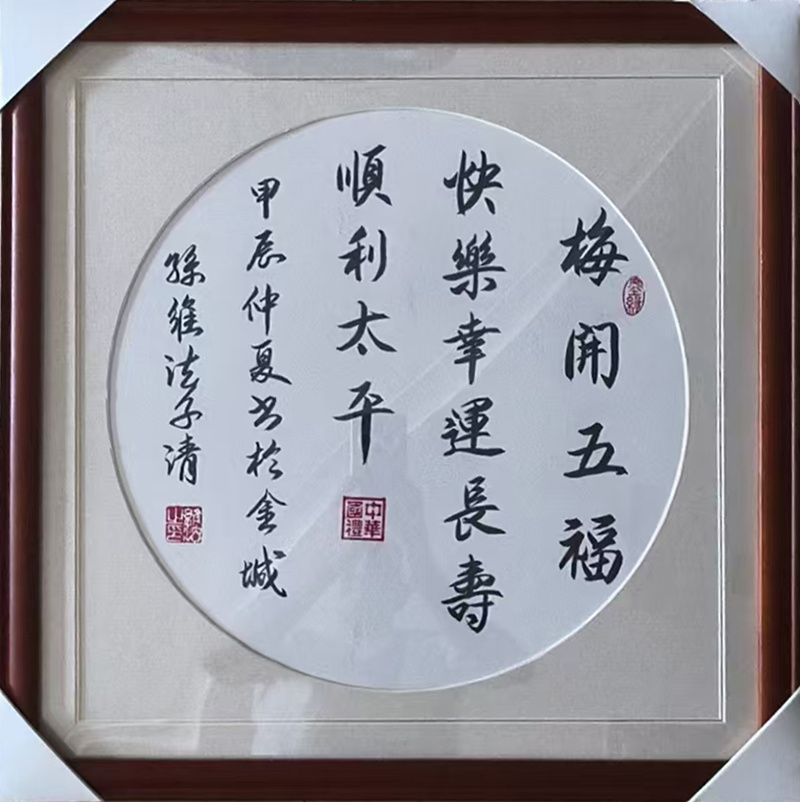 梅開五福
快樂幸運長壽
順利太平
中華國禮
甲辰仲夏書於金城
孫維法子清